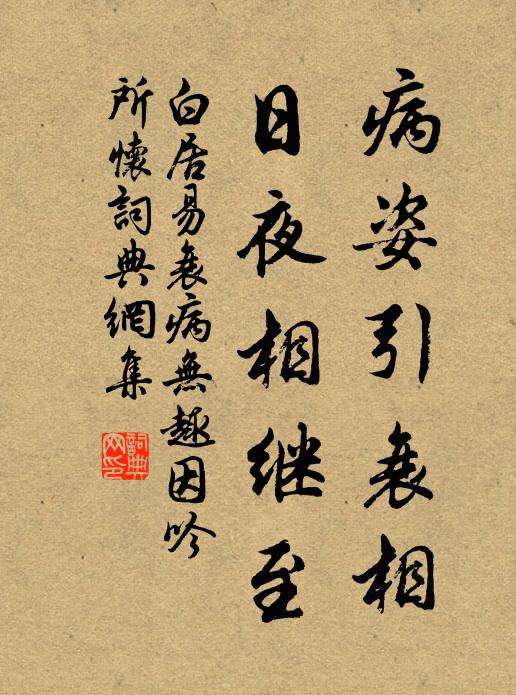 病姿引衰相
日夜相继至
白居易衰病無趣因吟
所懷詞典網集
詞典
网印